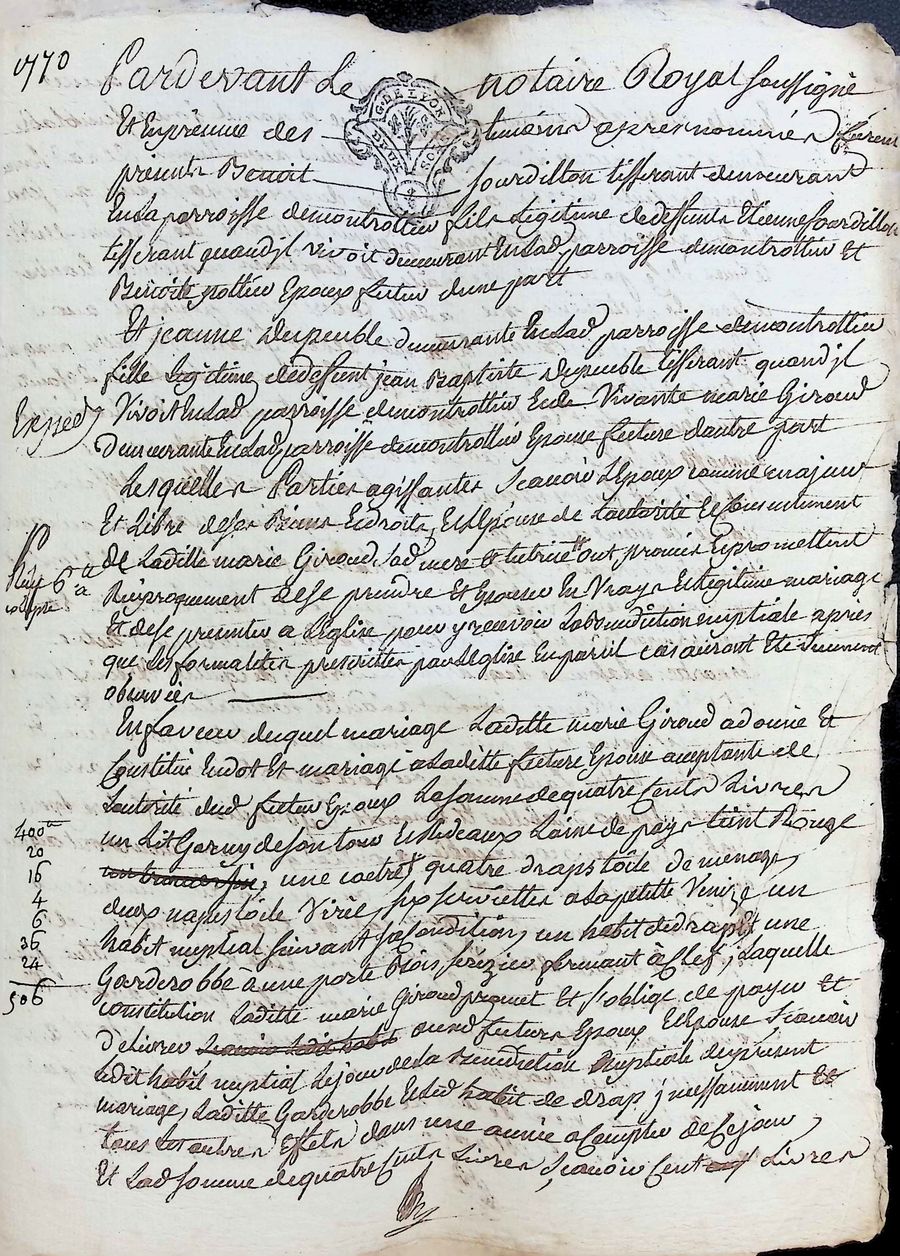 1770
Pardevant Le notaire Royal soussigné
Et En présence des temoins apres nommés furent
présents Benoit fourdillon tisserant demeurant
En La parroisse de montrottier fils Légitime de deffunts Etienne fourdillon
tisserant quand jl vivoit demeurant En Lad parroisse de montrottier Et
Benoite pottier Epoux futur d'une part
Et jeanne Dupeuble demeurante En Lad parroisse de montrottier
fille Legitime de deffunt jean Baptiste Dupeuble tisserant quand jl
Vivoit En Lad parroisse de montrottier Et de Vivante marie Giroud
demeurante En Lad parroisse de montrottier Epouse future d'autre part
Exped
Lesquelles Parties agissantes Scavoir L'Epoux comme majeur
Et Libre de ses Biens Et droits, Et L'Epouse de L'autorité Et Consentement
de Laditte marie Giroud sad mere Et tutrice ont promis Et promettent
Reciproquement de se prendre Et Epouser En Vray Et Legitime mariage
Et de se presenter a L'Eglise pour y recevoir La benediction nuptiale apres
que Les formalités prescrittes par L'Eglise En pareil cas auront Eté duement
observées
En faveur duquel mariage Laditte marie Giroud a donné Et
Constitué En dot Et mariage a Laditte future Epouse acceptante de
L'autorité dud futur Epoux La somme de quatre Cents Livres
un Lit Garny de son tour Et Rideaux Laine de pays teint Rouge
une caetre quatre draps toile de menage,
deux napes toile Virée, six serviettes a La petitte Venize un
habit nuptial suivant sa Condition, un habit de drap Et une
Garderobbe à une porte bois serizier fermant à Clef, Laquelle
constitution Laditte marie Giroud promet Et s'oblige de payer Et
delivrer auxd futurs Epoux Et Epouse Scavoir
Ledit habit nuptial Le jour de La Benediction Nuptiale du présent
mariage, Laditte Garderobbe Et Led habit de drap jncessament Et
tous Les autres Effets dans une année a Compter de Ce jour,
Et Lad somme de quatre Cents Livres Scavoir Cent Livres
400
20
16
4
6
36
24
506